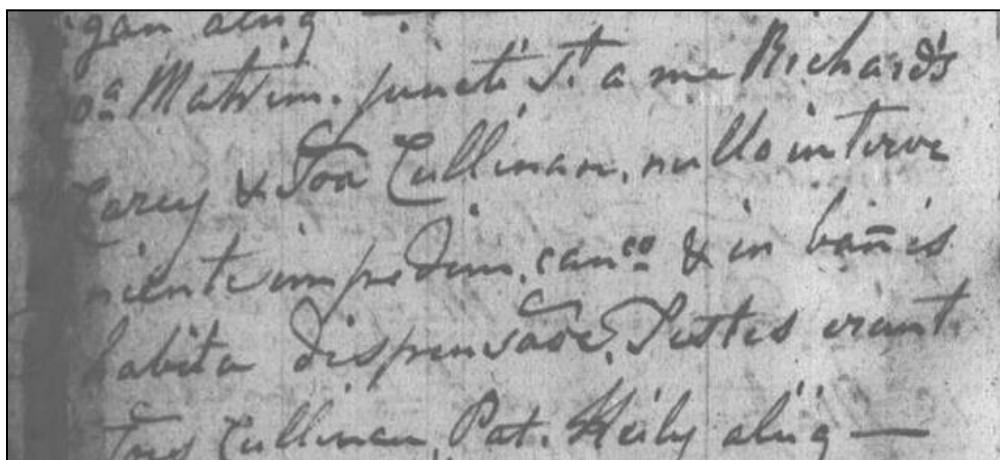 gan aliiq —
2a Matrim. juncti st. a me Richard's
Carey & Joa Cullinan, nullo interve
niente impedim. canco & in bañis
habita dispensãoe. Testes erant
Cullinan, Pat. Heily aliiq —